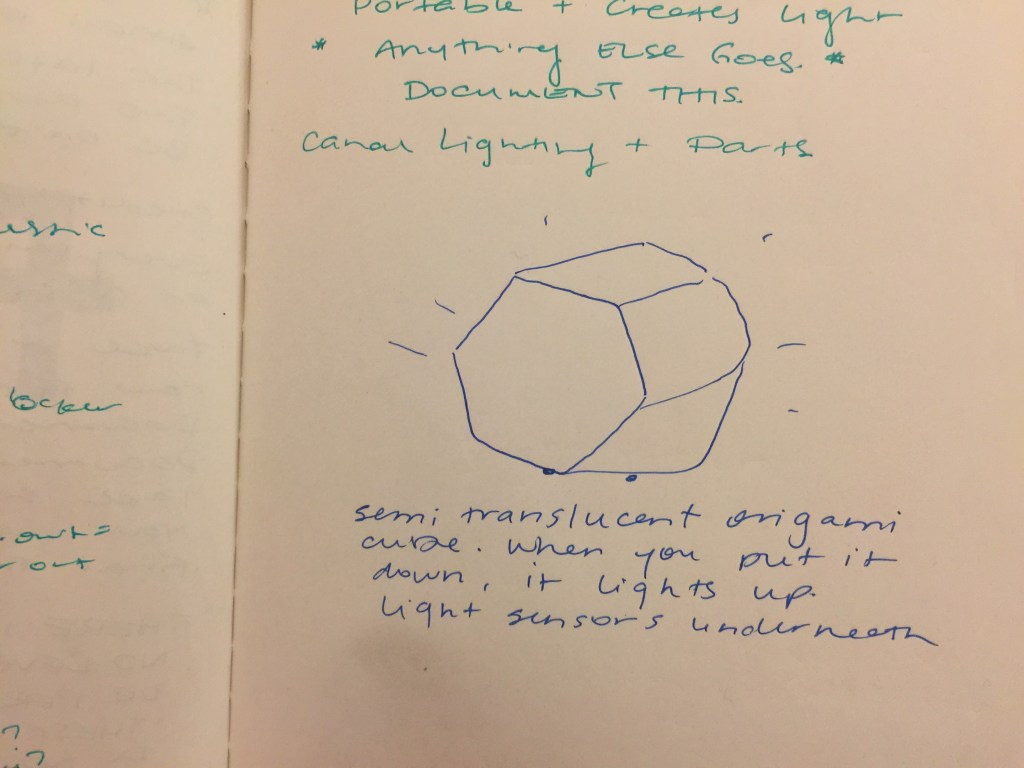 Portable + Creates light
* Anything ELSE Goes. *
DOCUMENT THIS.
Canal Lighting + Parts
semi translucent origami
cube. when you put it
down, it lights up.
light sensors underneath
ocker
out=
out
?
?